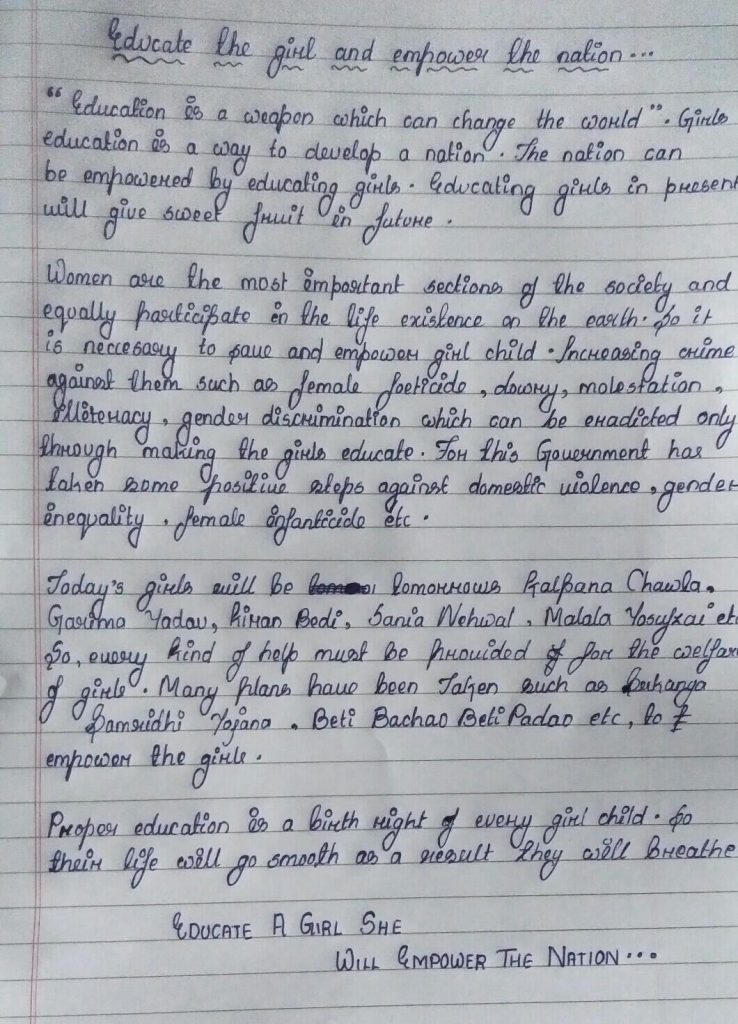 Educate the girl and empower the nation...
"Education is a weapon which can change the world". Girls
education is a way to develop a nation. The nation can
be empowered by educating girls. Educating girls in present
will give sweet fruit in future.
Women are the most important sections of the society and
equally participate in the life existence on the earth. So it
is neccesary to save and empower girl child. Increasing crime
against them such as female foeticide, dowry, molestation,
illiteracy, gender discrimination which can be eradicted only
through making the girls educate. For this Government has
taken some positive steps against domestic violence, gender
inequality, female infanticide etc.
Today's girls will be tomorrows Kalpana Chawla,
Garima Yadav, Kiran Bedi, Sania Nehwal, Malala Yosufxai etc
So, every kind of help must be provided for the welfar
of girls. Many plans have been Taken such as Sukanya
Samridhi Yojana, Beti Bachao Beti Padao etc, to
empower the girls.
Proper education is a birth right of every girl child. So
their life will go smooth as a result they will breathe
EDUCATE A GIRL SHE
WILL EMPOWER THE NATION...